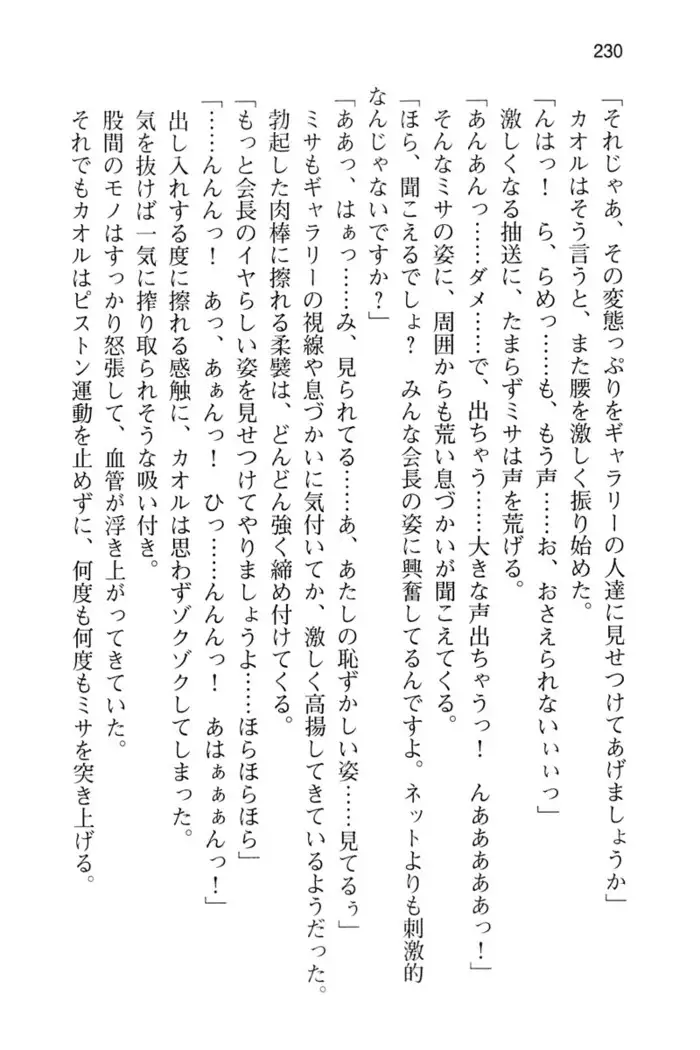 230
「それじゃあ、その変態っぷりをギャラリーの人達に見せつけてあげましょうか」
カオルはそう言うと、また腰を激しく振り始めた。
「んはっ！　ら、らめっ……も、もう声……お、おさえられないぃぃっ」
激しくなる抽送に、たまらずミサは声を荒げる。
「あんあんっ……ダメ……で、出ちゃう……大きな声出ちゃうっ！　んああああああっ！」
そんなミサの姿に、周囲からも荒い息づかいが聞こえてくる。
「ほら、聞こえるでしょ？　みんな会長の姿に興奮してるんですよ。ネットよりも刺激的
なんじゃないですか？」
「ああっ、はぁっ……み、見られてる……あ、あたしの恥ずかしい姿……見てるぅ」
ミサもギャラリーの視線や息づかいに気付いてか、激しく高揚してきているようだった。
勃起した肉棒に擦れる柔襞は、どんどん強く締め付けてくる。
「もっと会長のイヤらしい姿を見せつけてやりましょうよ……ほらほらほら」
「……んんんっ！　あっ、あぁんっ！　ひっ……んんんっ！　あはぁぁぁんっ！」
出し入れする度に擦れる感触に、カオルは思わずゾクゾクしてしまった。
気を抜けば一気に搾り取られそうな吸い付き。
股間のモノはすっかり怒張して、血管が浮き上がってきていた。
それでもカオルはピストン運動を止めずに、何度も何度もミサを突き上げる。